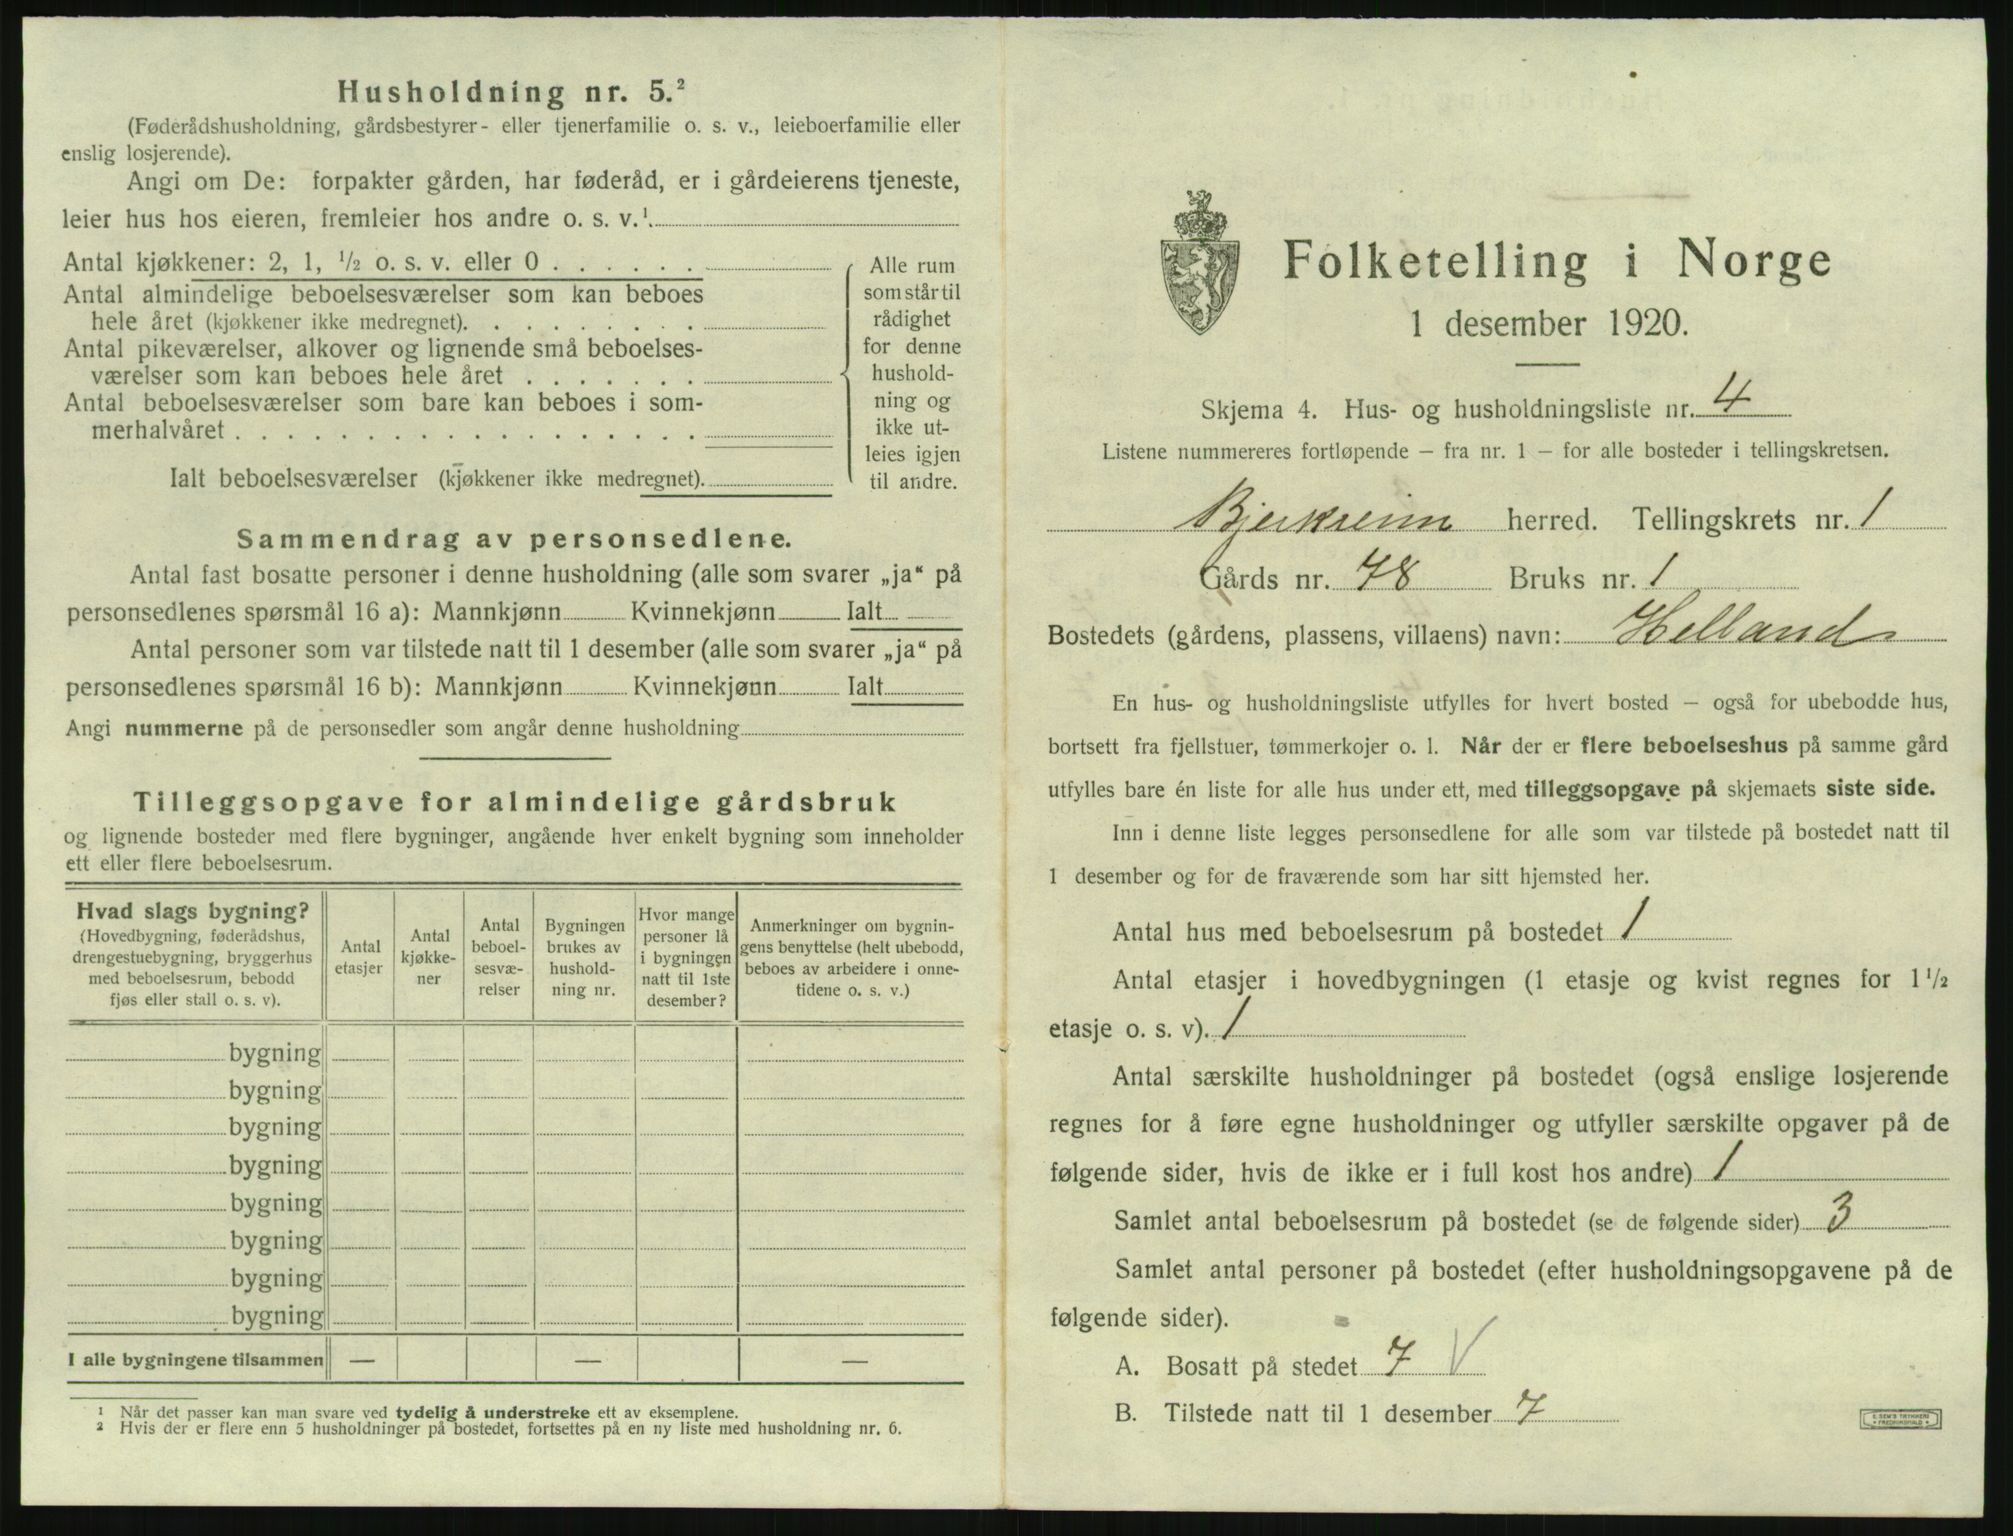 Husholdning nr. 5.²
(Føderådshusholdning, gårdsbestyrer- eller tjenerfamilie o. s. v., leieboerfamilie eller
enslig losjerende).
Angi om De: forpakter gården, har føderåd, er i gårdeierens tjeneste,
leier hus hos eieren, fremleier hos andre o. s. v.¹.
Antal kjøkkener: 2, 1, ½ o. s. v. eller 0 . . . . . .
Antal almindelige beboelsesværelser som kan beboes
hele året (kjøkkener ikke medregnet). . . . . . . . .
Antal pikeværelser, alkover og lignende små beboelses-
værelser som kan beboes hele året . . . . . . .
Antal beboelsesværelser som bare kan beboes i som-
merhalvåret . . . . . . . . . . . . . . . . . .
Ialt beboelsesværelser (kjøkkener ikke medregnet).
Alle rum
som står til
rådighet
for denne
hushold-
ning og
ikke ut-
leies igjen
til andre.
Sammendrag av personsedlene.
Antal fast bosatte personer i denne husholdning (alle som svarer „ja“ på
personsedlenes spørsmål 16 a): Mannkjønn Kvinnekjønn Ialt
Antal personer som var tilstede natt til 1 desember (alle som svarer „ja“ på
personsedlenes spørsmål 16 b): Mannkjønn Kvinnekjønn Ialt
Angi nummerne på de personsedler som angår denne husholdning
Tilleggsopgave for almindelige gårdsbruk
og lignende bosteder med flere bygninger, angående hver enkelt bygning som inneholder
ett eller flere beboelsesrum.
Hvad slags bygning?
(Hovedbygning, føderådshus,
drengestuebygning, bryggerhus
med beboelsesrum, bebodd
fjøs eller stall o. s. v).
Antal
etasjer
Antal
kjøkke-
ner
Antal
beboel-
sesvæ-
relser
Bygningen
brukes av
hushold-
ning nr.
Hvor mange
personer lå
i bygningen
natt til 1ste
desember?
Anmerkninger om bygnin-
gens benyttelse (helt ubebodd,
beboes av arbeidere i onne-
tidene o. s. v.)
bygning
bygning
bygning
bygning
bygning
bygning
bygning
bygning
I alle bygningene tilsammen — — —
¹ Når det passer kan man svare ved tydelig å understreke ett av eksemplene.
² Hvis der er flere enn 5 husholdninger på bostedet, fortsettes på en ny liste med husholdning nr. 6.
Folketelling i Norge
1 desember 1920.
Skjema 4. Hus- og husholdningsliste nr. 4
Listene nummereres fortløpende – fra nr. 1 – for alle bosteder i tellingskretsen.
Bjerkreim herred. Tellingskrets nr. 1
Gårds nr. 78 Bruks nr. 1
Bostedets (gårdens, plassens, villaens) navn: Helland
En hus- og husholdningsliste utfylles for hvert bosted – også for ubebodde hus,
bortsett fra fjellstuer, tømmerkojer o. l. Når der er flere beboelseshus på samme gård
utfylles bare én liste for alle hus under ett, med tilleggsopgave på skjemaets siste side.
Inn i denne liste legges personsedlene for alle som var tilstede på bostedet natt til
1 desember og for de fraværende som har sitt hjemsted her.
Antal hus med beboelsesrum på bostedet 1
Antal etasjer i hovedbygningen (1 etasje og kvist regnes for 1½
etasje o. s. v). 1
Antal særskilte husholdninger på bostedet (også enslige losjerende
regnes for å føre egne husholdninger og utfyller særskilte opgaver på de
følgende sider, hvis de ikke er i full kost hos andre) 1
Samlet antal beboelsesrum på bostedet (se de følgende sider) 3
Samlet antal personer på bostedet (efter husholdningsopgavene på de
følgende sider).
A. Bosatt på stedet 7 V
B. Tilstede natt til 1 desember 7
E. SEM'S TRYKKERI
FREDRIKSHALD